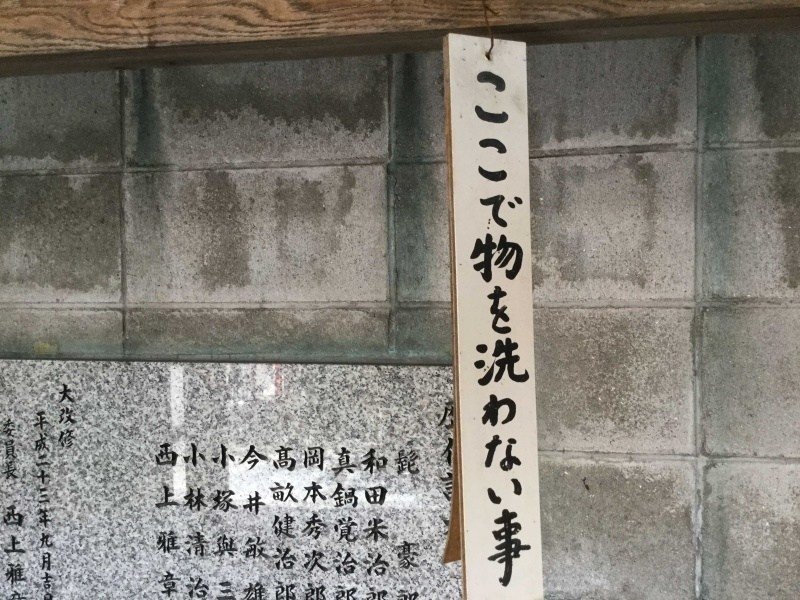 ここで物を洗わない事
髭 豪
和田米治郎
真鍋覚治郎
岡本秀次郎
高畝健治郎
今井敏雄
小塚與三
小林清治
西上雅章
大改修
平成二十三年九月吉日
委員長 西上雅章